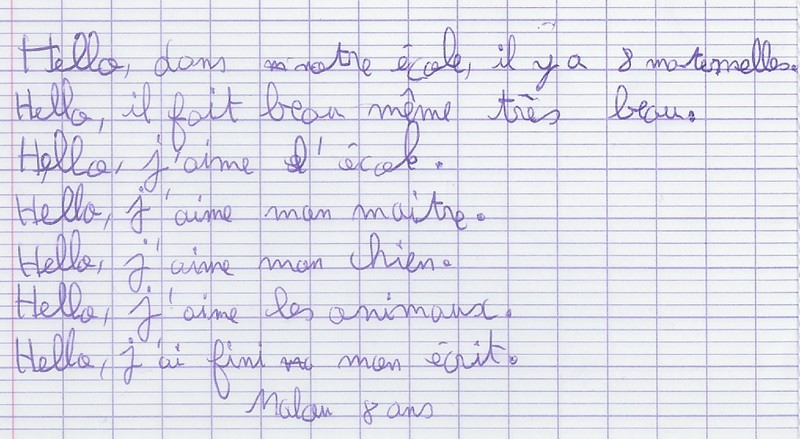 Hello, dans notre école, il y a 8 maternelles.
Hello, il fait beau même très beau.
Hello, j'aime l'école.
Hello, j'aime mon maitre.
Hello, j'aime mon chien.
Hello, j'aime les animaux.
Hello, j'ai fini mon écrit.
Malou 8 ans